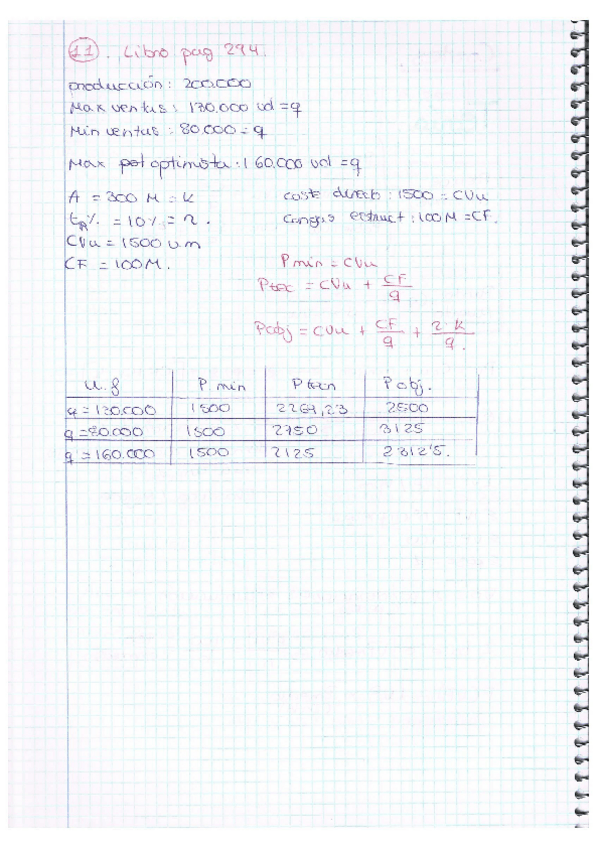 11. Libro pag 294.
producción: 200.000
Max ventas: 130.000 ud = q
Min ventas: 80.000 = q
Max pot optimista: 160.000 ud = q
A = 300 M = K coste directo: 1500 = CVu
tA% = 10% = r. Cargas estruct: 100M = CF.
CVu = 1500 u.m
CF = 100M. Pmin = CVu
Ptec = CVu + CF/q
Pobj = CVu + CF/q + r·K/q.
u.f P min P tecn P obj.
q = 130.000 1500 2269,23 2500
q = 80.000 1500 2750 3125
q = 160.000 1500 2125 2312'5.